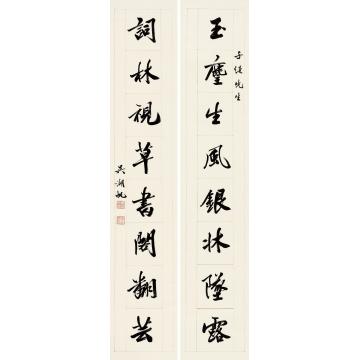 玉麈生風銀牀墜露
先生
詞林視草書閣翻芸
吳湖帆